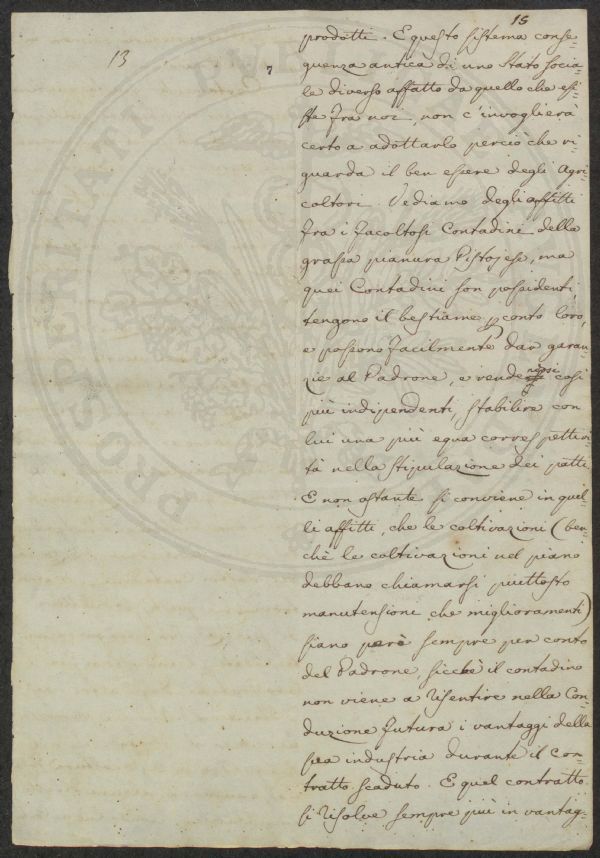 15
13
prodotti. E questo sistema conse=
guenza antica di uno Stato socia=
le diverso affatto da quello che esi=
ste fra noi, non c'invoglierà
certo a adottarlo perciò che ri=
guarda il ben essere degli Agri=
coltori. Vediamo degli affitti
fra i facoltosi Contadini della
grassa pianura Pistojese, ma
quei Contadini son possidenti,
tengono il bestiame p conto loro,
e possono facilmente dar garan=
zie al Padrone, e rendersi così
più indipendenti, stabilire con
lui una più equa correspettivi=
tà nella stipulazione dei patti.
E non ostante si conviene in quel=
li affitti, che le coltivazioni (ben=
chè le coltivazioni nel piano
debbano chiamarsi piuttosto
manutensioni che miglioramenti)
siano però sempre per conto
del Padrone, sicchè il contadino
non viene a risentire nella Con=
duzione futura i vantaggi della
sua industria durante il Con=
tratto scaduto. E quel contratto
si risolve sempre più in vantag=
PROSPERITATI PUBLICAE